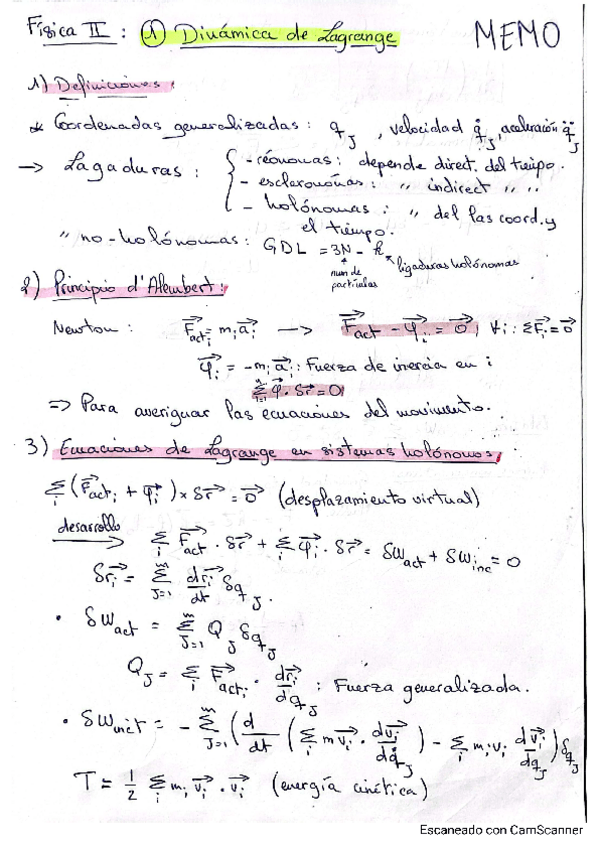 Física II : ① Dinámica de Lagrange MEMO
1) Definiciones :
* Coordenadas generalizadas : q_J , velocidad q̇_J, aceleración q̈_J
→ Lagaduras : { - réonomas : depende direct. del tiempo.
- escleronomas : " indirect " "
- holónomas : " del las coord. y
el tiempo.
" no-holónomas : GDL = 3N - k
num de particulas
ligaduras holónomas
2) Principio d'Alembert :
Newton : F⃗_act_i = m_i a⃗_i → F⃗_act - φ⃗_i = 0⃗, ∀i : ΣF⃗_i = 0⃗
φ⃗_i = -m_i a⃗_i : Fuerza de inercia en i
Σ φ⃗ . δr⃗ = 0
=> Para averiguar las ecuaciones del movimento.
3) Ecuaciones de Lagrange en sistemas holónomos,
Σ_i (F⃗_act_i + φ⃗_i) × δr⃗ = 0⃗ (desplazamiento virtual)
desarrollo → Σ_i F⃗_act . δr⃗ + Σ_i φ⃗_i . δr⃗ = δW_act + δW_inc = 0
δr⃗_i = Σ_{J=1}^m dr⃗_i/dt δq_J .
• δW_act = Σ_{J=1}^m Q_J δq_J
Q_J = Σ_i F⃗_act_i . dr⃗_i/dq_J : Fuerza generalizada.
• δW_inct = - Σ_{J=1}^m (d/dt (Σ_i m v⃗_i . dv⃗_i/dq̇_J) - Σ_i m_i v_i dv⃗_i/dq_J) δq_J
T = 1/2 Σ_i m_i v⃗_i . v⃗_i (energía cinética)
Escaneado con CamScanner